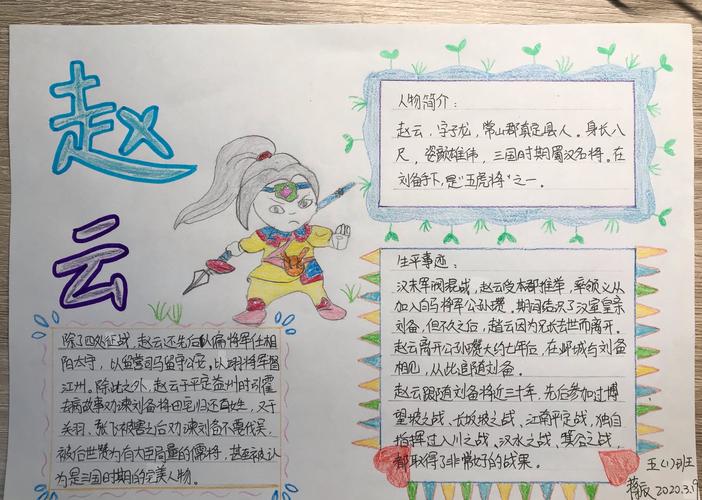 赵云
人物简介：
赵云，字子龙，常山郡真定县人。身长八
尺，姿颜雄伟，三国时期蜀汉名将。在
刘备手下，是"五虎将"之一。
生平事迹：
汉末军阀混战，赵云受本郡推举，率领义从
加入白马将军公孙瓒。期间结识了汉室皇亲
刘备，但不久之后，赵云因为兄长去世而离开。
赵云离开公孙瓒大约七年后，在邺城与刘备
相见，从此追随刘备。
赵云跟随刘备将近三十年，先后参加过博
望坡之战、长坂坡之战、江南平定战，独自
指挥过入川之战、汉水之战、箕谷之战，
都取得了非常好的战果。
除了四处征战，赵云还先后以偏将军任桂
阳太守，以留营司马留守公安，以翊将军督
江州。除此之外，赵云于平定益州时引霍
去病故事劝谏刘备将田宅归还百姓，又于
关羽、张飞被害之后劝谏刘备不要伐吴，
被后世赞为有大臣局量的儒将，甚至被认
为是三国时期的完美人物。
五(1)班
2020.3.19